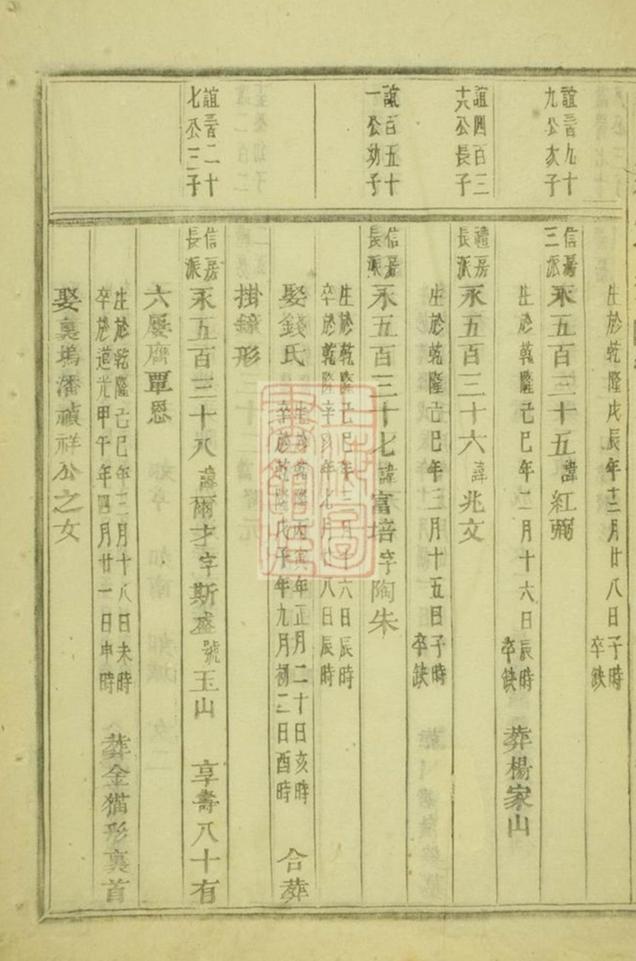 生於乾隆戊辰年十二月廿八日子時
卒缺
誼晉九十
九公次子
信房
三派
永五百三十五諱紅彌
生於乾隆己巳年二月十六日辰時
卒缺
葬楊家山
誼四百三
十六公長子
禮房
長派
永五百三十六諱兆文
生於乾隆己巳年三月十五日子時
卒缺
誼百五十
一公幼子
信房
長派
永五百三十七諱富培字陶朱
生於乾隆己巳年三月十六日辰時
卒於乾隆辛亥年七月十八日辰時
娶錢氏
生於乾隆丙寅年正月二十日亥時
卒於乾隆戊午年九月初二日酉時
合葬
掛鐘形
誼晉二十
七公三子
信房
長派
永五百三十八諱爾才字斯盛號玉山
享壽八十有
六屢膺覃恩
生於乾隆己巳年三月十八日未時
卒於道光甲午年四月廿一日申時
葬金猫形裏首
娶裏塢潘禎祥公之女